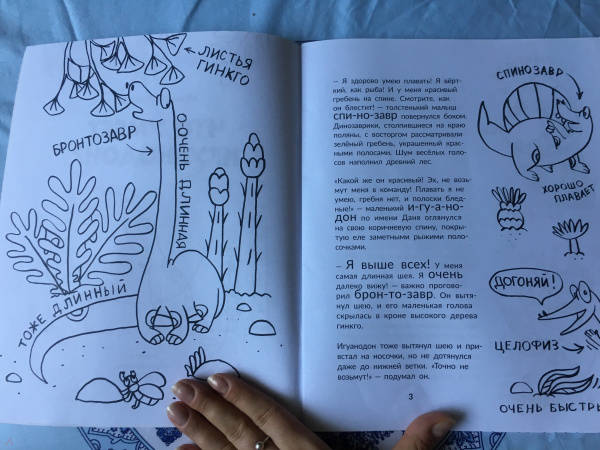 ЛИСТЬЯ
ГИНКГО
БРОНТОЗАВР
О-ОЧЕНЬ ДЛИННАЯ
ТОЖЕ ДЛИННЫЙ
— Я здорово умею плавать! Я вёрт-
кий, как рыба! И у меня красивый
гребень на спине. Смотрите, как
он блестит! — толстенький малыш
спи-но-завр повернулся боком.
Динозаврики, столпившиеся на краю
поляны, с восторгом рассматривали
зелёный гребень, украшенный красны-
ми полосами. Шум весёлых голо-
сов наполнил древний лес.
«Какой же он красивый! Эх, не возь-
мут меня в команду! Плавать я не
умею, гребня нет, и полоски блед-
ные!» — маленький и-гу-а-но-
дон по имени Даня оглянулся
на свою коричневую спину, покры-
тую еле заметными рыжими поло-
сочками.
— Я выше всех! У меня
самая длинная шея. Я очень
далеко вижу! — важно прогово-
рил брон-то-завр. Он вытя-
нул шею, и его маленькая голова
скрылась в кроне высокого дерева
гинкго.
Игуанодон тоже вытянул шею и при-
встал на носочки, но не дотянулся
даже до нижней ветки. «Точно не
возьмут!» — подумал он.
3
СПИНОЗАВР
ХОРОШО
ПЛАВАЕТ
ДОГОНЯЙ!
ЦЕЛОФИЗ
ОЧЕНЬ БЫСТРЫ